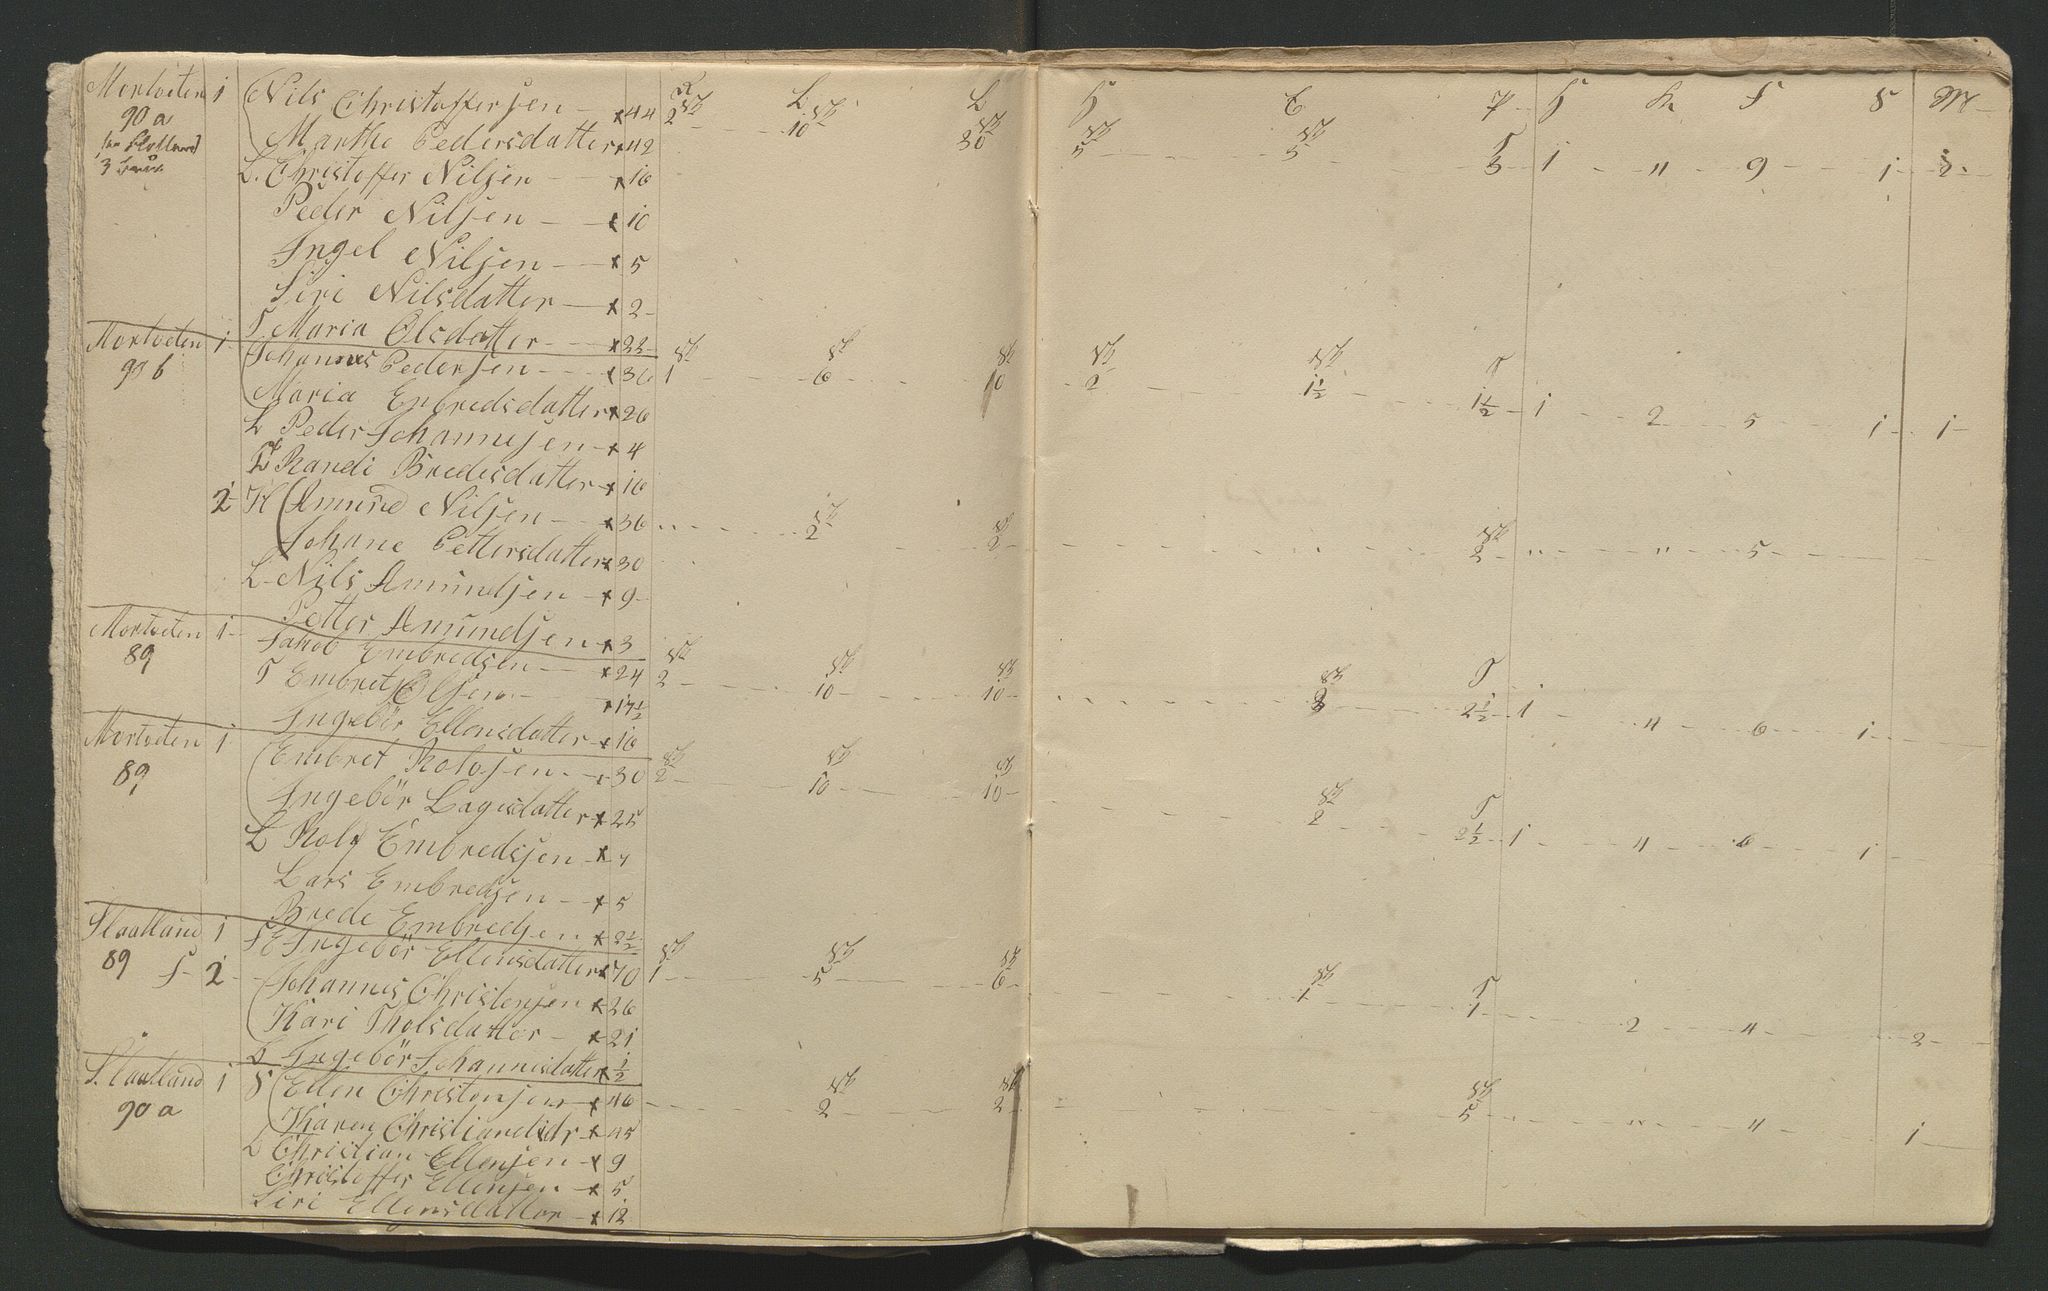 Mortveten 1 Nils Christoffersen x 44
90 a Marthe Pedersdatter x 42
3 L. Christoffer Nilsen x 16
Peder Nilsen x 10
Ingel Nilsen x 5
Siri Nilsdatter x 2
T Maria Olsdatter x 22
Mortveten 1 Johannes Pedersen x 36
90 b Maria Enbredsdatter x 26
L Peder Johannesen x 4
Randi Bredesdatter x 16
2 H Amund Nilsen x 36
Johane Pettersdatter x 30
L Nils Amundsen x 9
Petter Amundsen x 3
Mortveten 1 Jakob Embredsen x 24
89 T Embret Olsen x 17½
Ingebör Ellensdatter x 16
Mortveten 1 Embret Rolvsen x 30
89 Ingebör Lagesdatter x 25
L Rolf Embredsen x 7
Lars Embredsen x 5
Brede Embredsen x 2½
Slaatland 1 F E Ingebör Ellensdatter x 70
89 S 2 Johannes Christensen x 26
Kari Tholsdatter x 21
L Ingebör Johannesdatter x ½
Slaatland 1 S Ellen Christensen x 46
90 a Karen Christiansdtr x 45
L Christian Ellensen x 9
Christoffer Ellensen x 5
Siri Ellensdatter x 12
L L H E P H K F S M
2 10 30 5 5 3 1 " 9 1 2
1 6 10 2 1½ 1½ 1 2 5 1 1
2 2 " 2 " " 5
2 10 10 2 2½ 1 4 6 1
2 10 10 2 2½ 1 4 6 1
1 5 6 1 1 2 4 2
2 2 5 " 4 1